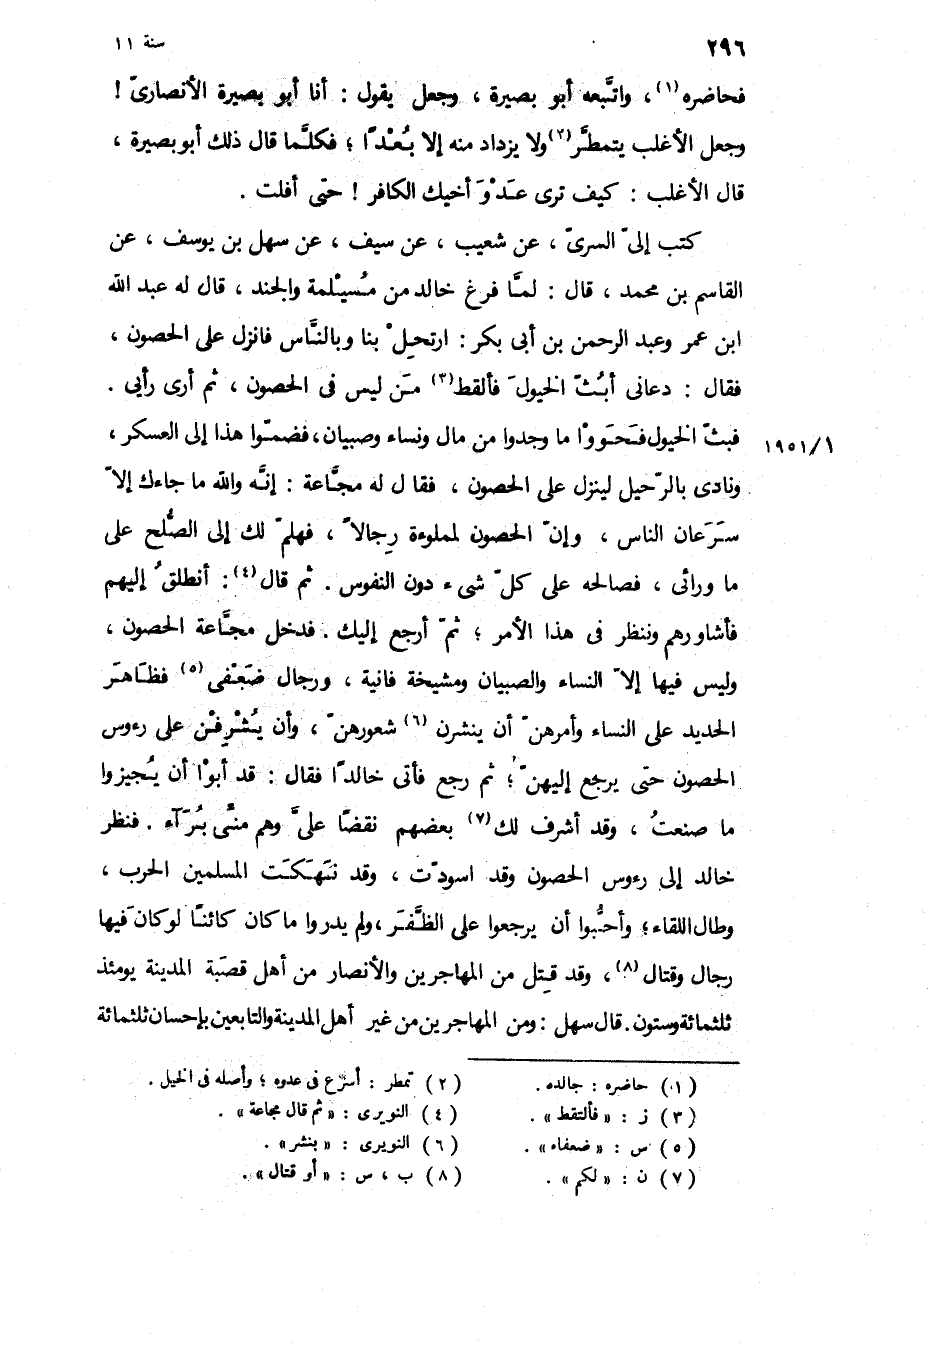 ٢٩٦ سنة ١١
فحاضره(١)، واتَّبعه أبو بصيرة ، وجعل يقول : أنا أبو بصيرة الأنصارىّ !
وجعل الأغلب يتمطَّر(٢) ولا يزداد منه إلا بُعْدًا ؛ فكلَّما قال ذلك أبو بصيرة ،
قال الأغلب : كيف ترى عَدْوَ أخيك الكافر ! حتى أفلت .
كتب إلىّ السرىّ ، عن شعيب ، عن سيف ، عن سهل بن يوسف ، عن
القاسم بن محمد ، قال : لمَّا فرغ خالد من مُسَيْلمة والجند ، قال له عبد الله
ابن عمر وعبد الرحمن بن أبى بكر : ارتحِلْ بنا وبالنَّاس فانزل على الحصون ،
فقال : دعانى أبُثّ الخيولَ فألقط(٣) مَن ليس فى الحصون ، ثم أرى رأيى .
فبثّ الخيول فَحَوَوْا ما وجدوا من مال ونساء وصبيان، فضمّوا هذا إلى العسكر ، ١٩٥١/١
ونادى بالرّحيل لينزل على الحصون ، فقال له مجَّاعة : إنَّه والله ما جاءك إلاّ
سَرَعان الناس ، وإنّ الحصون لمملوءة رِجالاً ، فهلمّ لك إلى الصُّلح على
ما ورائى ، فصالحه على كلّ شىء دون النفوس . ثم قال(٤) : أنطلقُ إليهم
فأشاورهم وننظر فى هذا الأمر ؛ ثمّ أرجع إليك . فدخل مجَّاعة الحصون ،
وليس فيها إلاّ النساء والصبيان ومشيخة فانية ، ورجال ضَعْفى(٥) فظاهَرَ
الحديد على النساء وأمرهنّ أن ينشرن(٦) شعورهنّ ، وأن يُشْرِفْن على رءوس
الحصون حتى يرجع إليهنّ ؛ ثم رجع فأتى خالدًا فقال : قد أبوْا أن يُجيزوا
ما صنعتُ ، وقد أشرف لك(٧) بعضهم نقضًا علىَّ وهم منِّى بُرَآء . فنظر
خالد إلى رءوس الحصون وقد اسودّت ، وقد نَهَكَت المسلمين الحرب ،
وطال اللقاء؛ وأحبُّوا أن يرجعوا على الظَّفَر، ولم يدروا ما كان كائنًا لو كان فيها
رجال وقتال(٨)، وقد قُتِل من المهاجرين والأنصار من أهل قصَبة المدينة يومئذ
ثلثمائة وستون . قال سهل : ومن المهاجرين من غير أهل المدينة والتابعين بإحسان ثلثمائة
(١) حاضره : جالده . (٢) تمطر : أسرع فى عدوه ؛ وأصله فى الخيل .
(٣) ز : « فألتقط » . (٤) النويرى : « ثم قال مجاعة » .
(٥) س : « ضعفاء » . (٦) النويرى : « بنشر » .
(٧) ن : « لكم » . (٨) ب ، س : « أو قتال » .